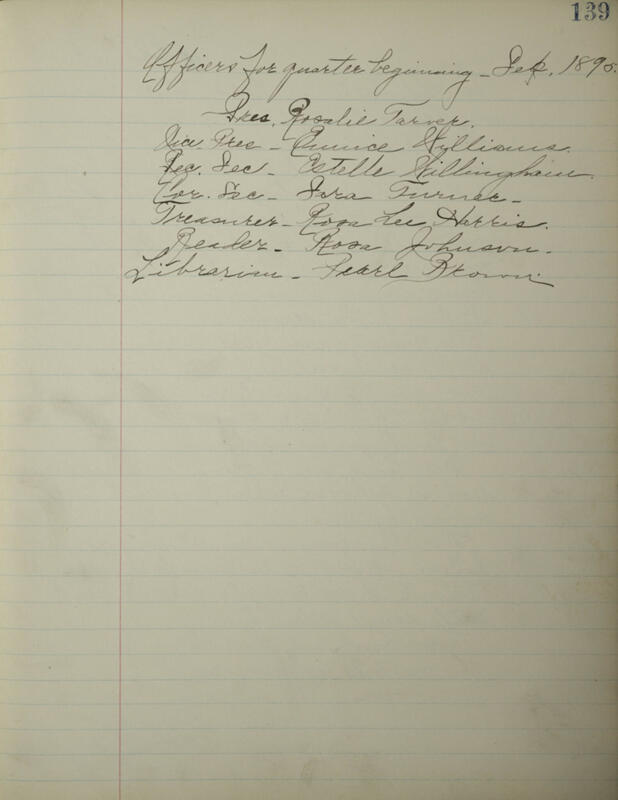 139
Officers for quarter beginning - Sep. 1895.
Pres. Rosalie Tarver.
Vice Pres - Eunice Williams.
Rec. Sec - Estelle Killingham.
Cor. Sec - Turner -
Treasurer - Rosa Lee Harris.
Reader - Rosa Johnson.
Librarian - Pearl Brown.